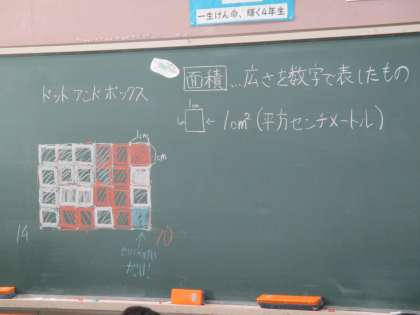 一生けん命、輝く4年生
面積…広さを数字で表したもの
ドットアンドボックス
1cm
← 1cm²(平方センチメートル)
1cm
1cm
14
10